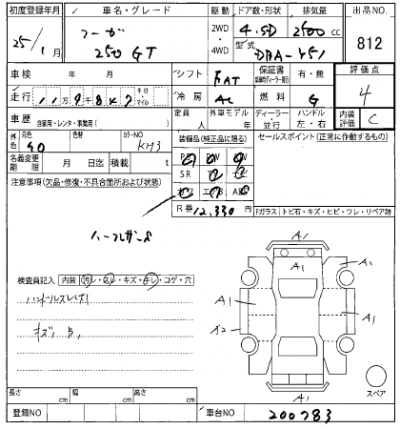 初度登録年月 車名・グレード 駆動 ドア数・形状 排気量 出品NO.
25/1月 フーガ 2WD 4.5D 2500cc 812
250GT ・4WD 型式 DBA-Y51
車検 年 月 シフト FAT 保証書 有・無 評価点
走行 11万9千8 キロ・マイル 冷房 AC 燃料 G 4
車歴 自家用・レンタ・事業用( ) 定員 人 外車モデル 年 ディーラー・並行 ハンドル 左・右 内装評価 C
外色 元色 40 カラーNO KH3 装備品(純正品に限る) セールスポイント(正常に作動するもの)
名義変更期限 月 日迄 積載 t SR
注意事項(欠品・修復・不具合箇所および状態)
R券 12,330円 Fガラス トビ石・キズ・ヒビ・ワレ・リペア跡
A1
A1 A1
検査員記入 内装 汚レ・スレ・キズ・キレ・コゲ・穴 A1 A1
ハンドルスレ
A2
キズ
A1 スペア
長さ cm 幅 cm 高さ cm
登録NO 車台NO 200783